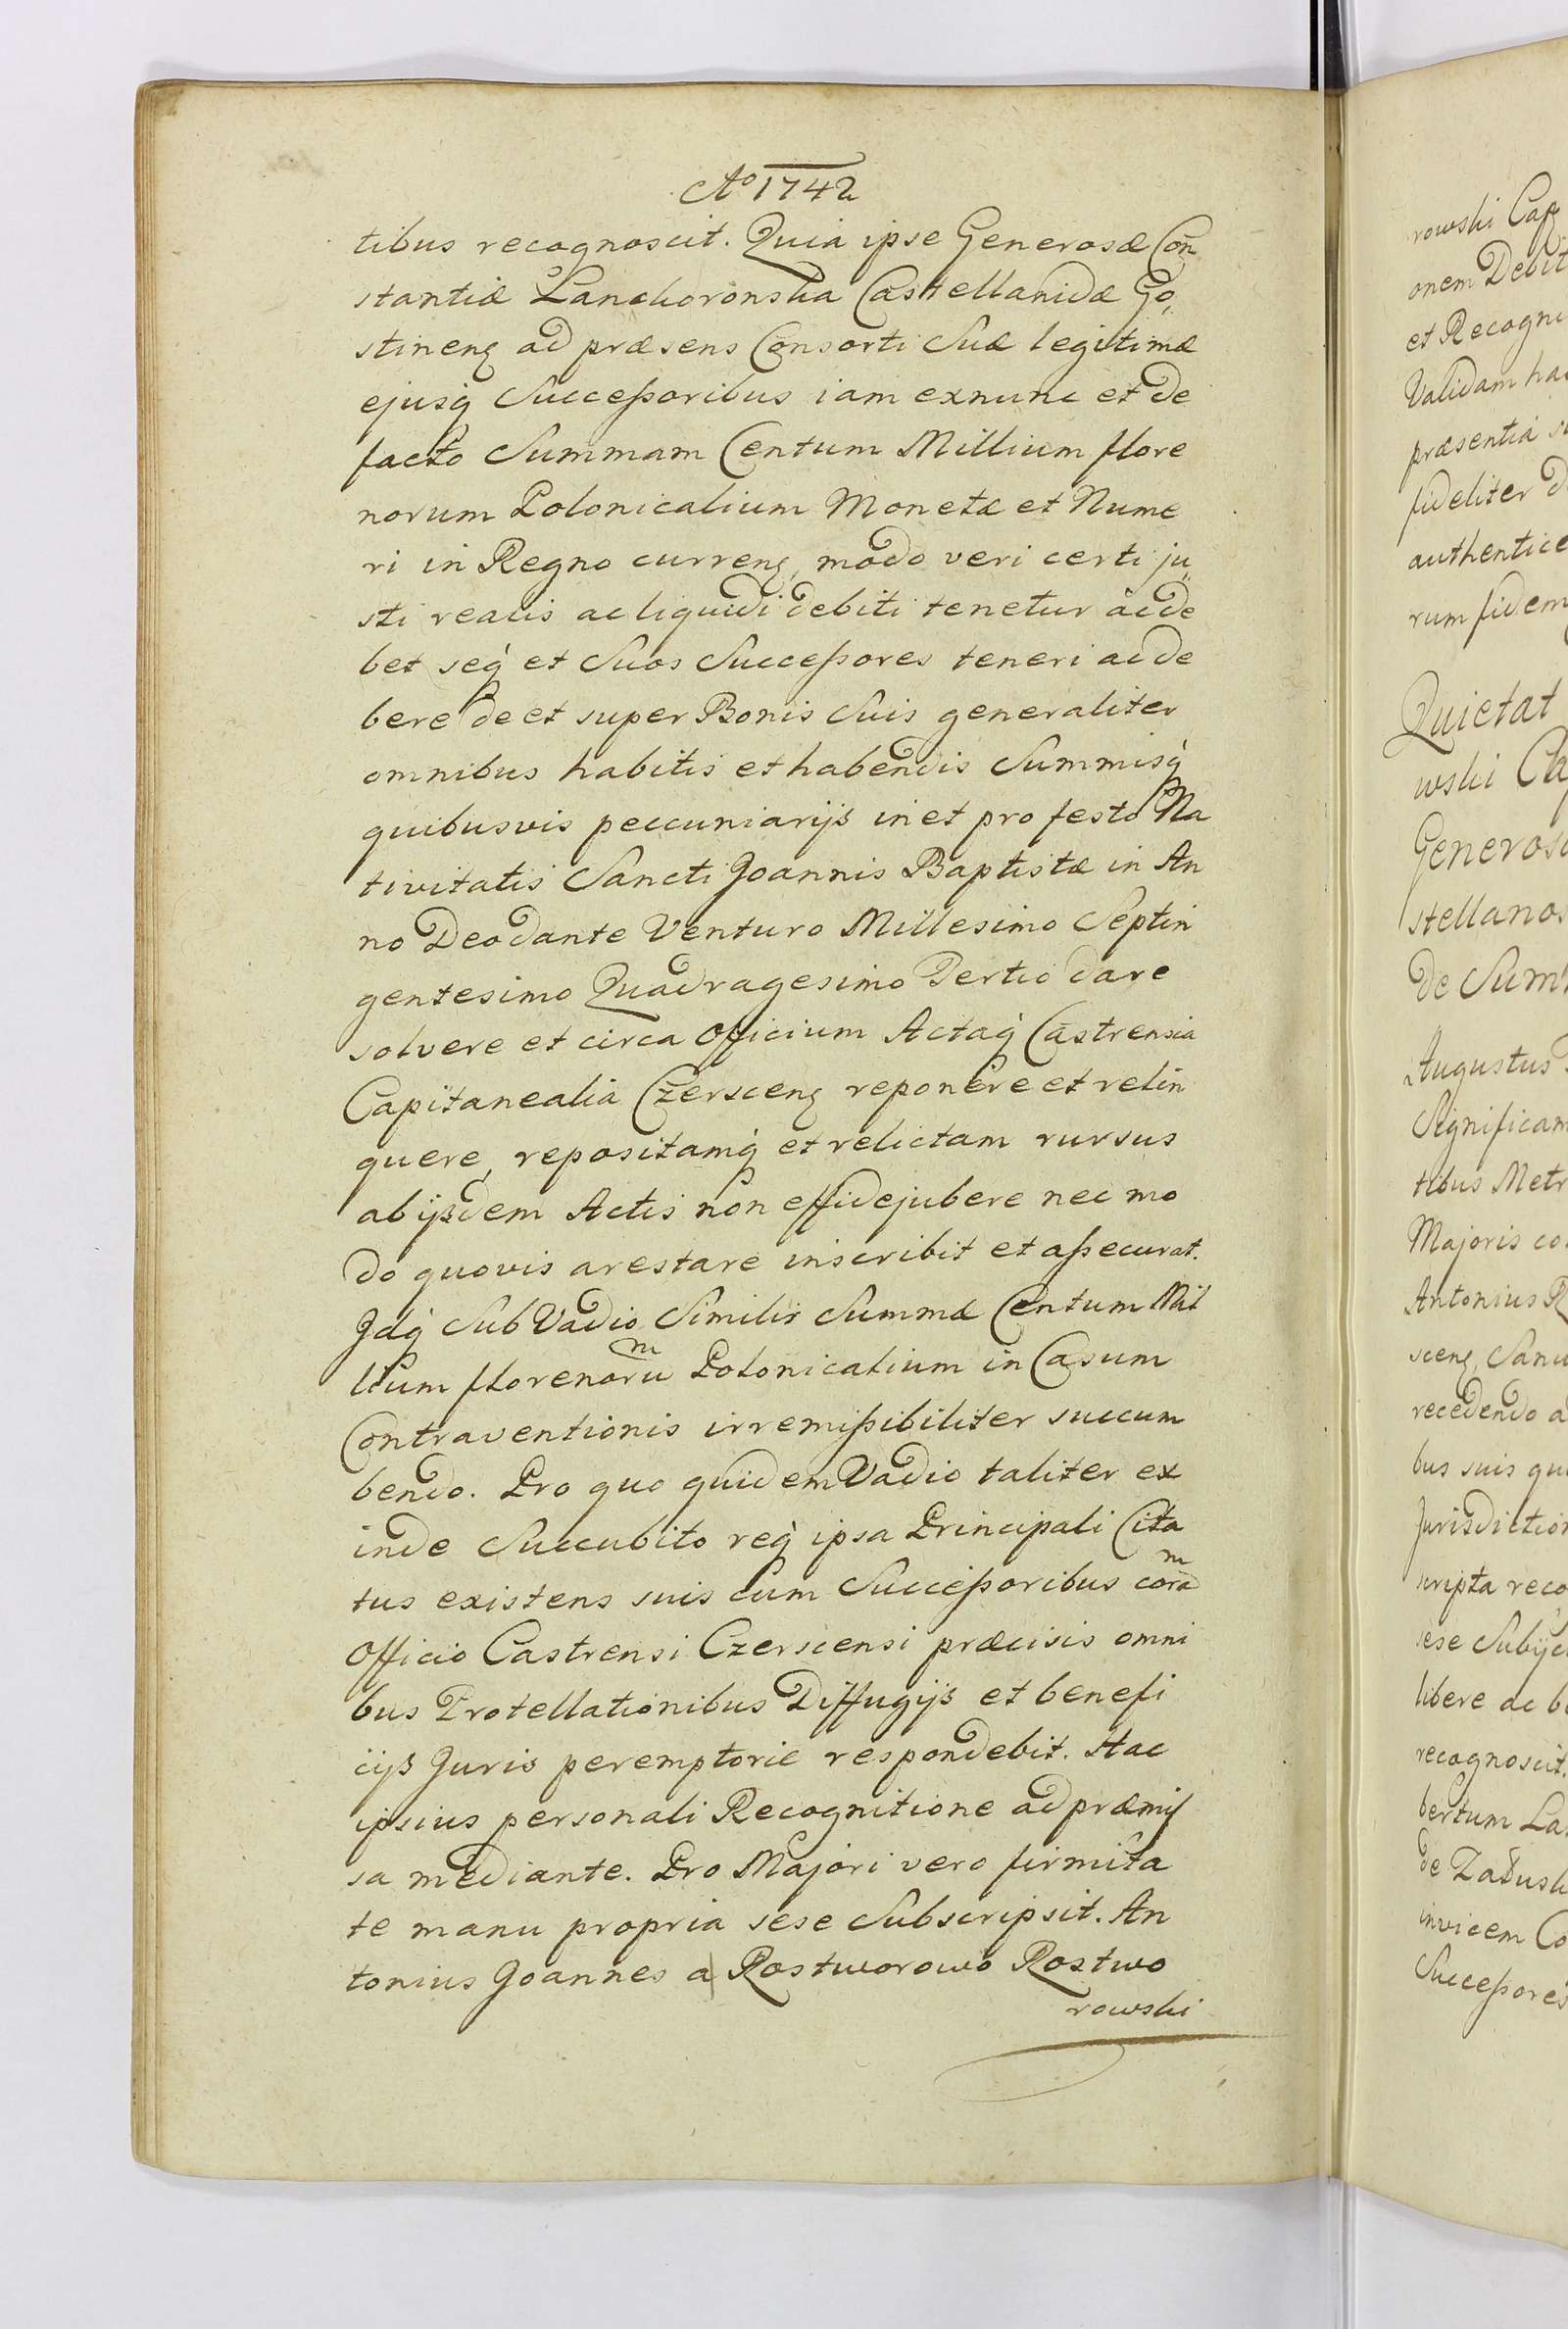 Ao 1742
tibus recognoscit. Quia ipse Generosæ Con
stantiæ Lanckoronska Castellanidæ Go„
stineng ad præsens Consorti Suæ legitimæ
ejusq́ Successoribus iam exnunc et de
facto Summam Centum Millium flore
norum Polonicalium Monetæ et Nume
ri in Regno curreng, modo veri certi ju„
sti realis ac liquidi debiti tenetur ac de
bet seq́ et Suos Successores teneri ac de
bere de et super Bonis Suis generaliter
omnibus habitis et habendis Summisq́
quibusvis peccuniarijs in et pro festo Na
tivitatis Sancti Joannis Baptistæ in An
no Deo dante Venturo Millesimo Septin
gentesimo Quadragesimo Tertio dare
solvere et circa Officium Actaq́ Castrensia
Capitanealia Czersceng reponere et relin
quere, repositamq́ et relictam rursus
ab ijsdem Actis non effidejubere nec mo
do quovis arestare inscribit et assecurat.
Idq́ Sub Vadio Similis Summæ Centum Mil
lium florenorum Polonicalium in Casum
Contraventionis irremissibiliter succum
bendo. Pro quo quidem Vadio taliter ex
inde Succubito req́ ipsa Principali Cita
tus existens suis cum Successoribus coram
Officio Castrensi Czerscensi præcisis omni
bus Protellationibus Diffugijs et benefi
cijs Juris peremptorie respondebit. Hac
ipsius personali Recognitione ad præmis
sa mediante. Pro Majori vero firmita
te manu propria sese Subscripsit. An
tonius Joannes a Rostworowo Rostwo
rowski
rowski Cap
onem Debit
et Recogni
Validam ha
præsentia
fideliter
authentice
rum fidem
Quietat
wski
Generos
stellanos
de Sum
Augustus
Significam
tibus Metr
Majoris co
Antonius R
sceng,
recedendo a
bus suis qu
Jurisdiction
scripta reco
sese Subijc
libere ac b
recognoscit.
bertum La
de
invicem Co
Successores